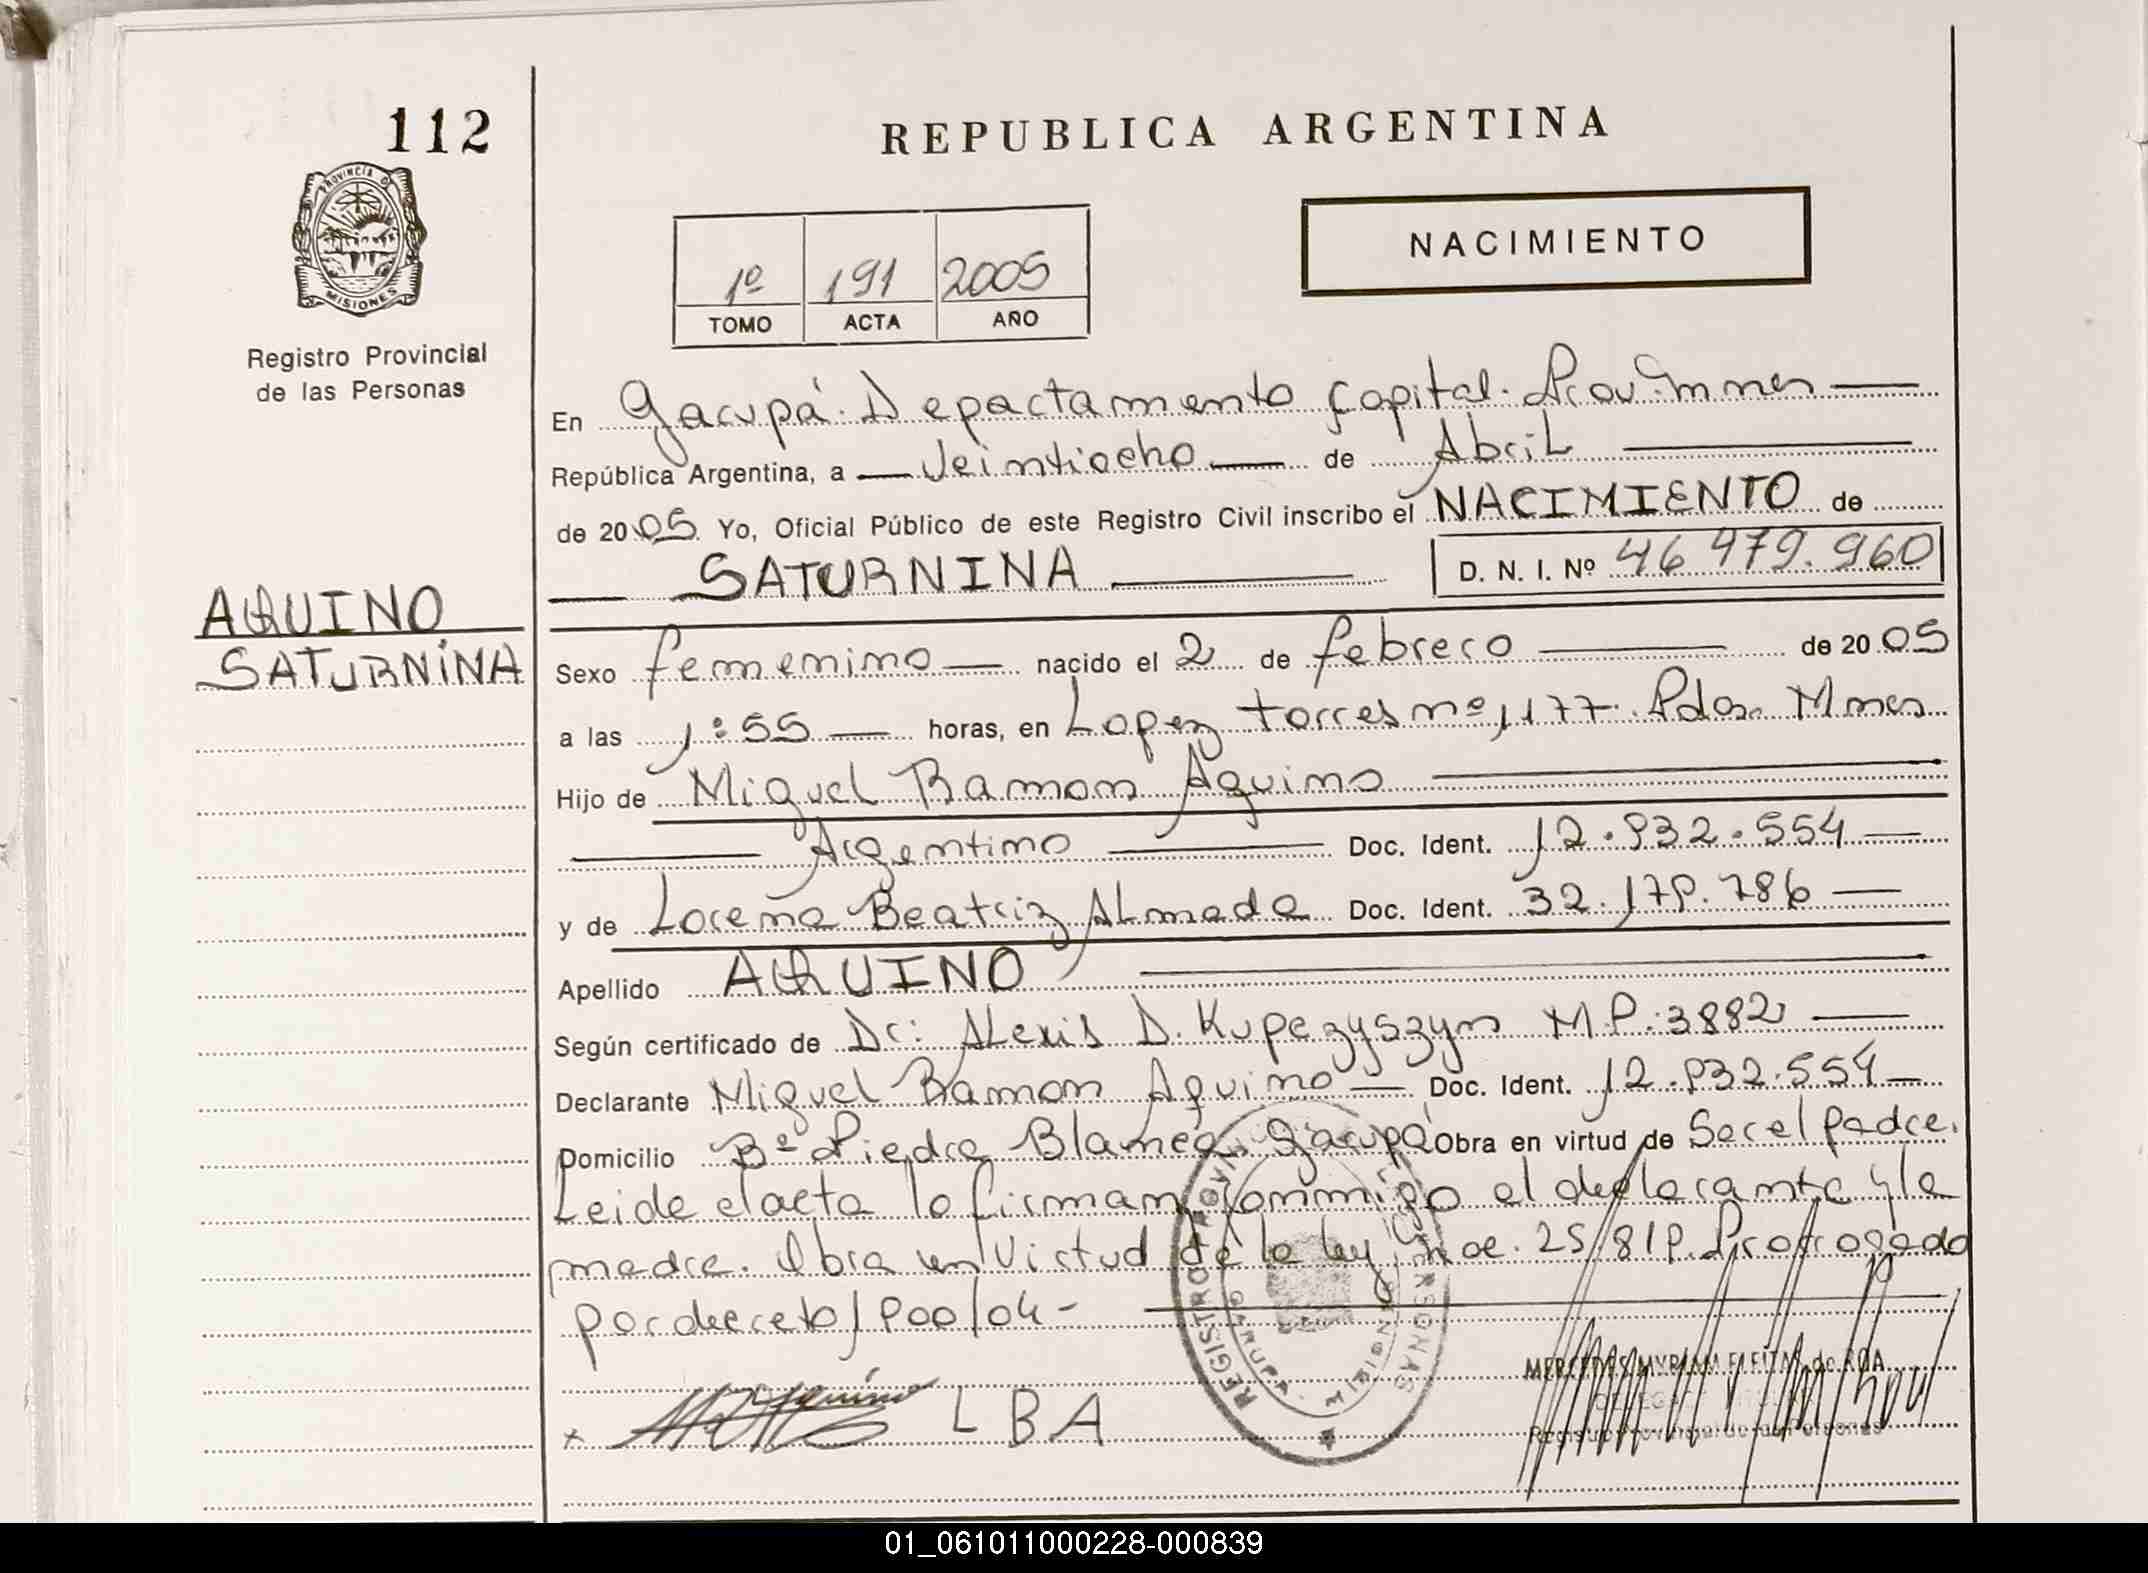 112
REPUBLICA ARGENTINA
PROVINCIA D
MISIONES
Registro Provincial
de las Personas
NACIMIENTO
1º 191 2005
TOMO ACTA AÑO
En Garupá. Departamento Capital. Prov. Mnes
República Argentina, a Veintiocho de Abril
de 2005 Yo, Oficial Público de este Registro Civil inscribo el NACIMIENTO de
SATURNINA D. N. I. Nº 46 479.960
AQUINO
SATURNINA
Sexo femenino nacido el 2 de febrero de 2005
a las 1:55 horas, en Lopez Torres nº 1177. Pdas. Mnes
Hijo de Miguel Ramon Aquino
Argentino Doc. Ident. 12.932.554
y de Lorena Beatriz Almada Doc. Ident. 32.179.786
Apellido AQUINO
Según certificado de Dr: Alexis D. Kupezyszyn M.P.:3882
Declarante Miguel Ramon Aquino Doc. Ident. 12.932.554
Domicilio Bº Piedra Blanca, Garupá Obra en virtud de Ser el padre.
Leida el acta lo firman conmigo el declarante y la
madre. Obra en Virtud de la ley nºe. 25/819. Prorrogada
por decreto 1900/04-
LBA
REGISTRO PROVI PERSONAS
GARUPA
MERCEDES MYRIAM FLEITAS de ROA
Registro Provincial de las Personas
01_061011000228-000839